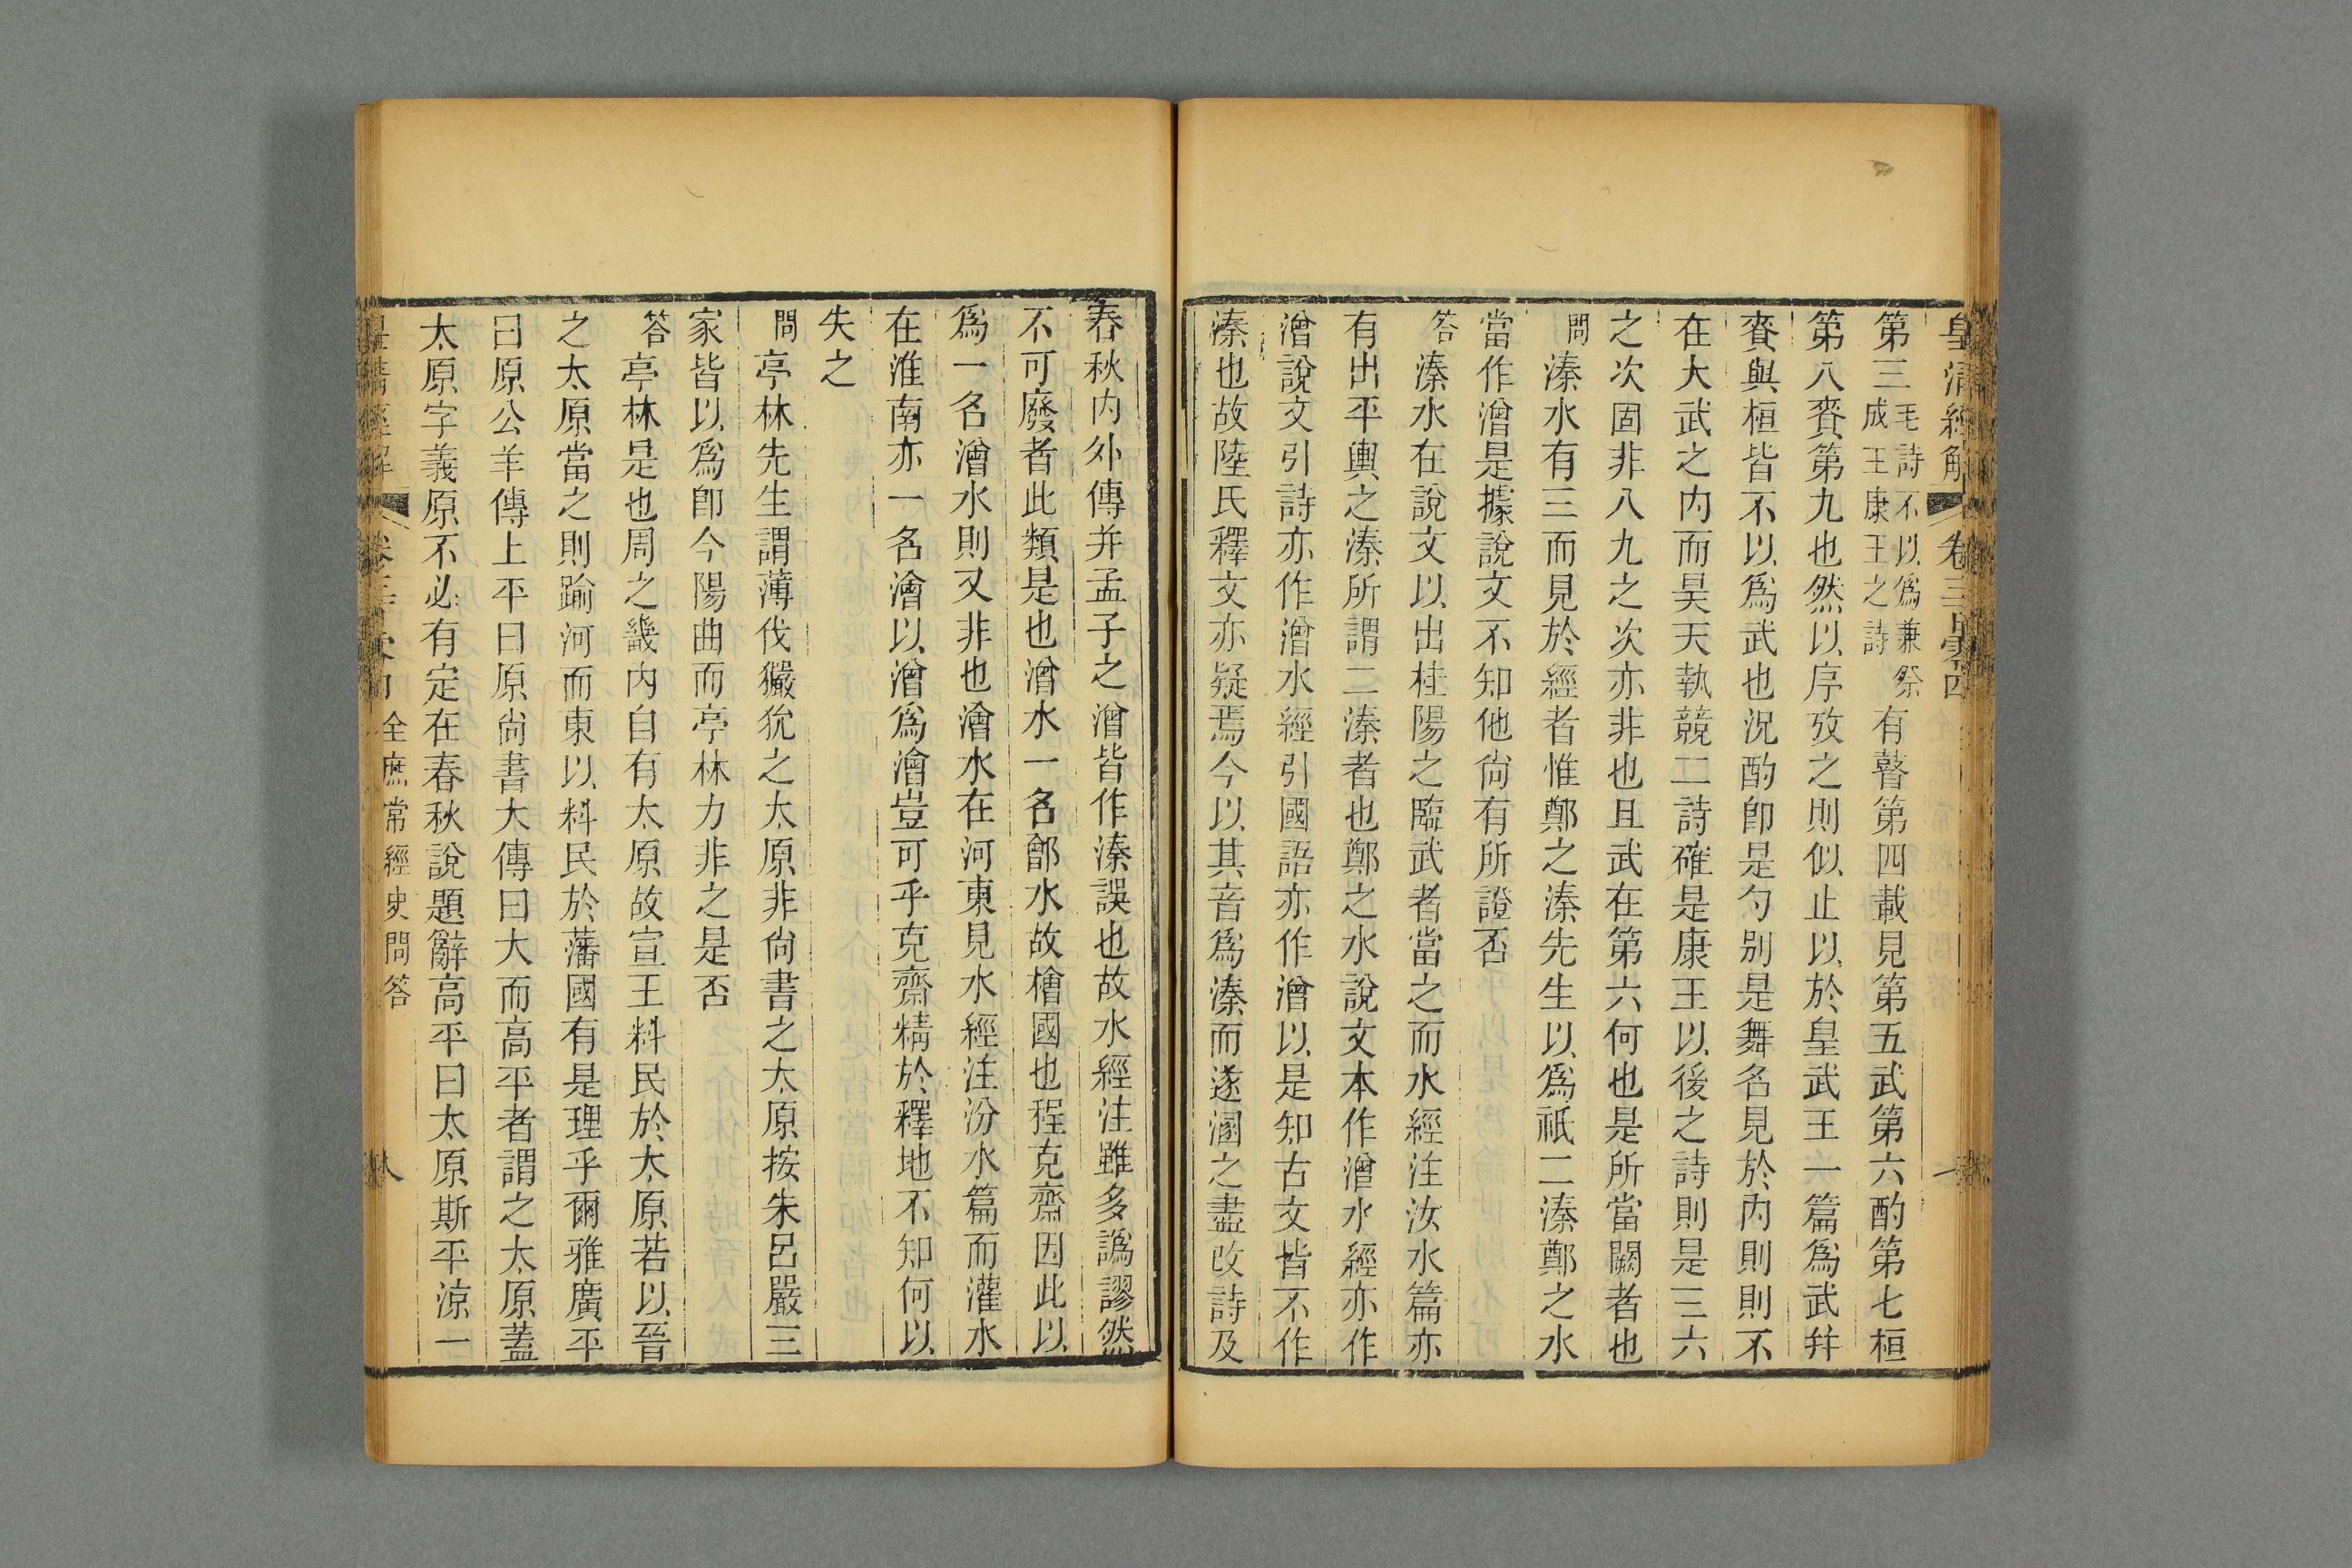 皇清經解 卷三百零四
第三毛詩不以爲兼祭成王康王之詩有瞽第四載見第五武第六酌第七桓
第八賚第九也然以序攷之則似止以於皇武王一篇爲武幷
賚與桓皆不以爲武也況酌卽是勺别是舞名見於內則則不
在大武之內而昊天執競二詩確是康王以後之詩則是三六
之次固非八九之次亦非也且武在第六何也是所當闕者也
問溱水有三而見於經者惟鄭之溱先生以爲祇二溱鄭之水
當作潧是據說文不知他尙有所證否
答溱水在說文以出桂陽之臨武者當之而水經注汝水篇亦
有出平輿之溱所謂二溱者也鄭之水說文本作潧水經亦作
潧說文引詩亦作潧水經引國語亦作潧以是知古文皆不作
溱也故陸氏釋文亦疑焉今以其音爲溱而遂溷之盡改詩及
春秋內外傳并孟子之潧皆作溱誤也故水經注雖多譌謬然
不可廢者此類是也潧水一名鄶水故檜國也程克齋因此以
爲一名潧水則又非也澮水在河東見水經注汾水篇而灌水
在淮南亦一名澮以潧爲澮豈可乎克齋精於釋地不知何以
失之
問亭林先生謂薄伐玁狁之太原非尙書之太原按朱呂嚴三
家皆以爲卽今陽曲而亭林力非之是否
答亭林是也周之畿內自有太原故宣王料民於太原若以晉
之太原當之則踰河而東以料民於藩國有是理乎爾雅廣平
曰原公羊傳上平曰原尙書大傳曰大而高平者謂之太原蓋
太原字義原不必有定在春秋說題辭高平曰太原斯平涼一
皇清經解 卷三百零四 全庶常經史問答 八